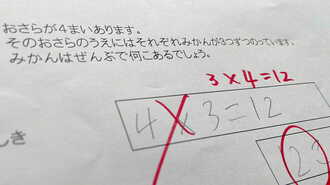 おさらが4まいあります。
そのおさらのうえにはそれぞれみかんが3つずつのっています。
みかんはぜんぶで何こあるでしょう。
3×4=12
4×3=12
しき